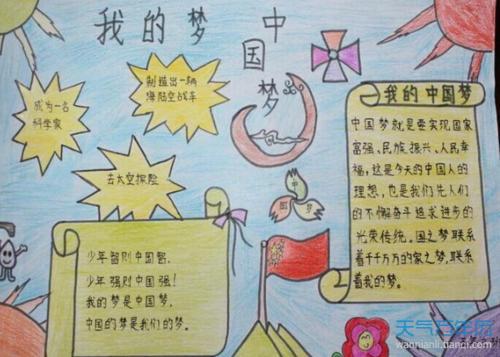 我的梦
中国梦
成为一名
科学家
制造出一辆
海陆空战车
去太空探险
少年智则中国智,
少年强则中国强!
我的梦是中国梦,
中国的梦是我们的梦。
我的中国梦
中国梦就是要实现国家
富强、民族振兴、人民幸
福,这是今天的中国人的
理想,也是我们先人们
的不懈奋斗追求进步的
光荣传统。国之梦联系
着千千万万的家之梦,联系
着我的梦。
天气万年历
wannianli.tianqi.com